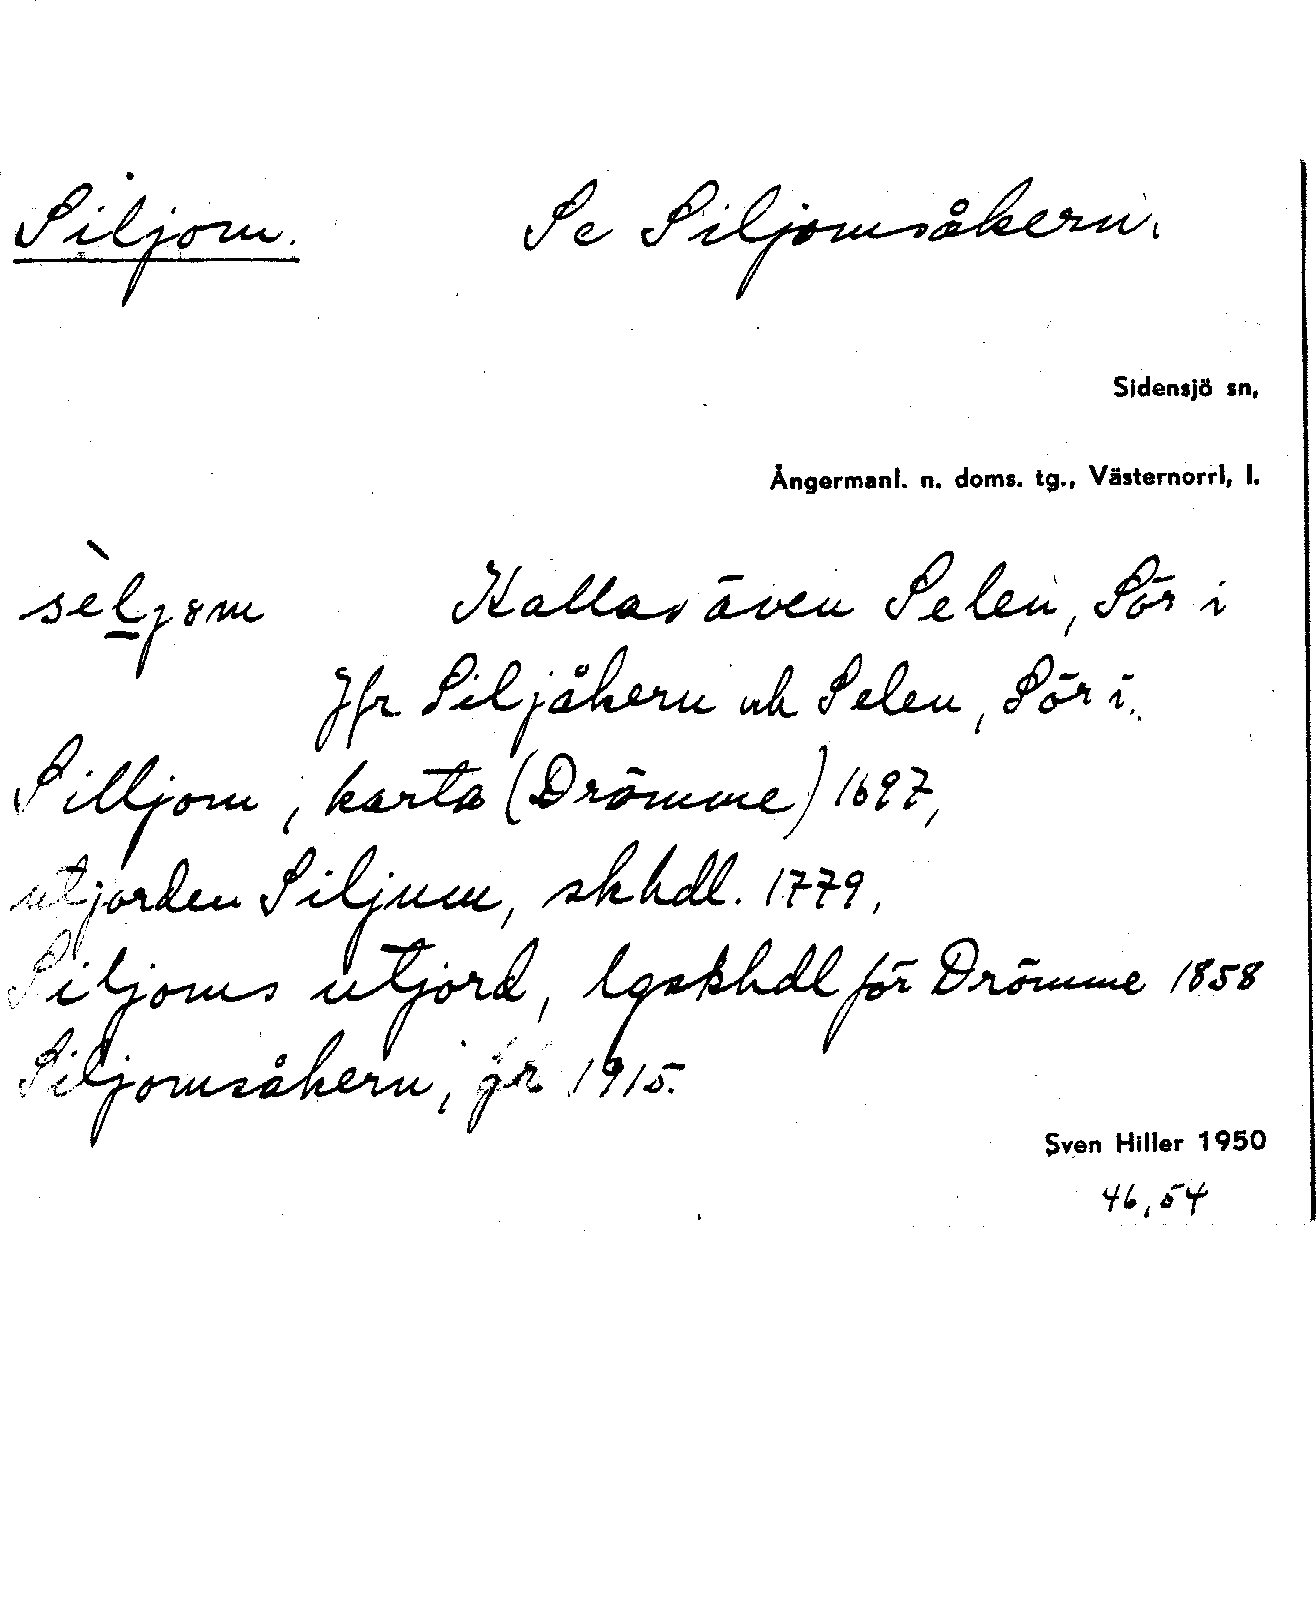 Siljom. Se Siljomsåkern.
Sidensjö sn,
Ångermanl. n. doms. tg., Västernorrl, l.
sèljom Kallas även Selen, Sör i
Jfr Siljåkern och Selen, Sör i.
Silljom, karta (Drömme) 1697,
utjorden Siljum, skhdl. 1779,
Siljoms utjord, lgskhdl för Drömme 1858
Siljomsåkern, jr 1915.
Sven Hiller 1950
46, 54